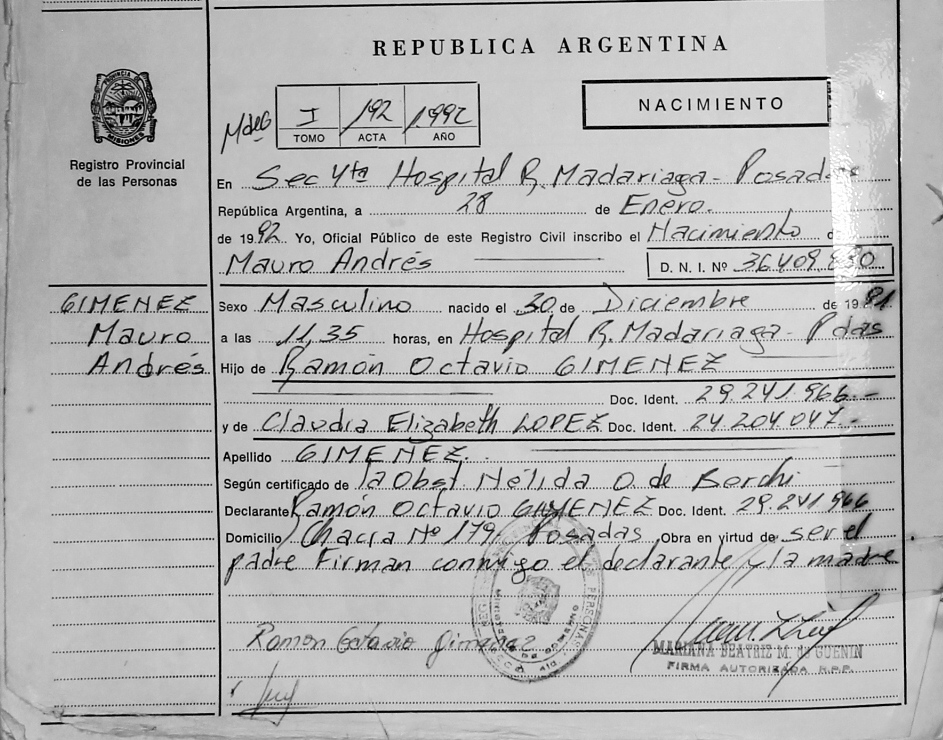 REPUBLICA ARGENTINA
PROVINCIA DE
MISIONES
Registro Provincial
de las Personas
I 192 1992
TOMO ACTA AÑO
NACIMIENTO
En Sec 4ta Hospital R. Madariaga - Posadas
República Argentina, a 28 de Enero.
de 1992 Yo, Oficial Público de este Registro Civil inscribo el Nacimiento d
Mauro Andrés D. N. I. Nº 36.409
GIMENEZ
Mauro
Andrés
Sexo Masculino nacido el 30 de Diciembre de 19
a las 11,35 horas, en Hospital R. Madariaga - Pdas
Hijo de Ramón Octavio GIMENEZ
Doc. Ident. 29.241.966.-
y de Claudia Elizabeth LOPEZ Doc. Ident. 24.204.047.-
Apellido GIMENEZ.
Según certificado de la Obst. Nélida O. de Berchi
Declarante Ramón Octavio GIMENEZ Doc. Ident. 29.241.966
Domicilio Chacra Nº 179 Posadas Obra en virtud de ser el
padre Firman conmigo el declarante y la madre
Ramon Octavio Gimenez
MARIANA BEATRIZ M. de GUENIN
FIRMA AUTORIZADA R.P.P.